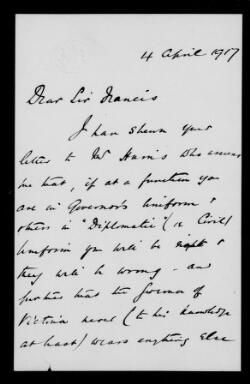 4 April 1917
Dear Sir Francis
I have shewn your
letter to Mr Harris who assures
me that, if at a function you
are in Governor's Uniform &
others in "Diplomatic" (or Civil)
Uniform you will be right &
they will be wrong - and
further that the Governor of
Victoria never (to his knowledge
at least) wears anything else